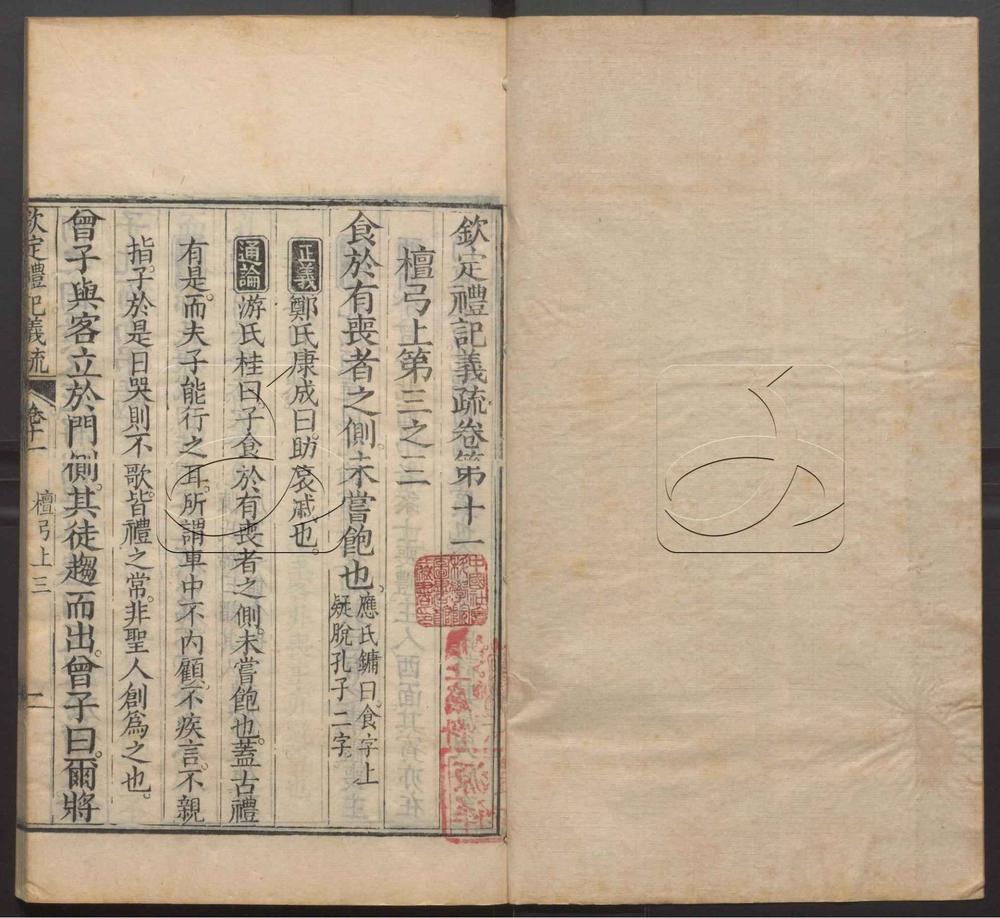 欽定禮記義疏卷第十一
檀弓上第三之三
食於有喪者之側。未嘗飽也。
應氏鏞曰。食字上
疑脫孔子二字。
正義 鄭氏康成曰。助哀戚也。
通論 游氏桂曰。子食於有喪者之側。未嘗飽也。蓋古禮
有是。而夫子能行之耳。所謂車中不內顧。不疾言。不親
指。子於是日哭則不歌。皆禮之常。非聖人創爲之也。
曾子與客立於門側。其徒趨而出。曾子曰。爾將
欽定禮記義疏 卷十一 檀弓上三